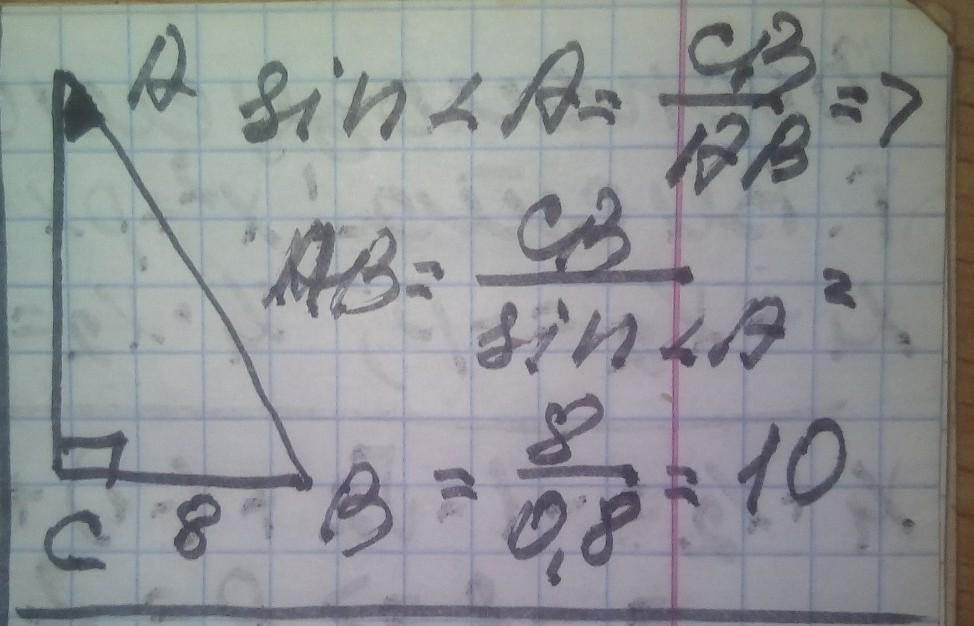 A sin∠A = CB/AB =>
AB = CB/sin∠A =
= 8/0,8 = 10
C 8 B